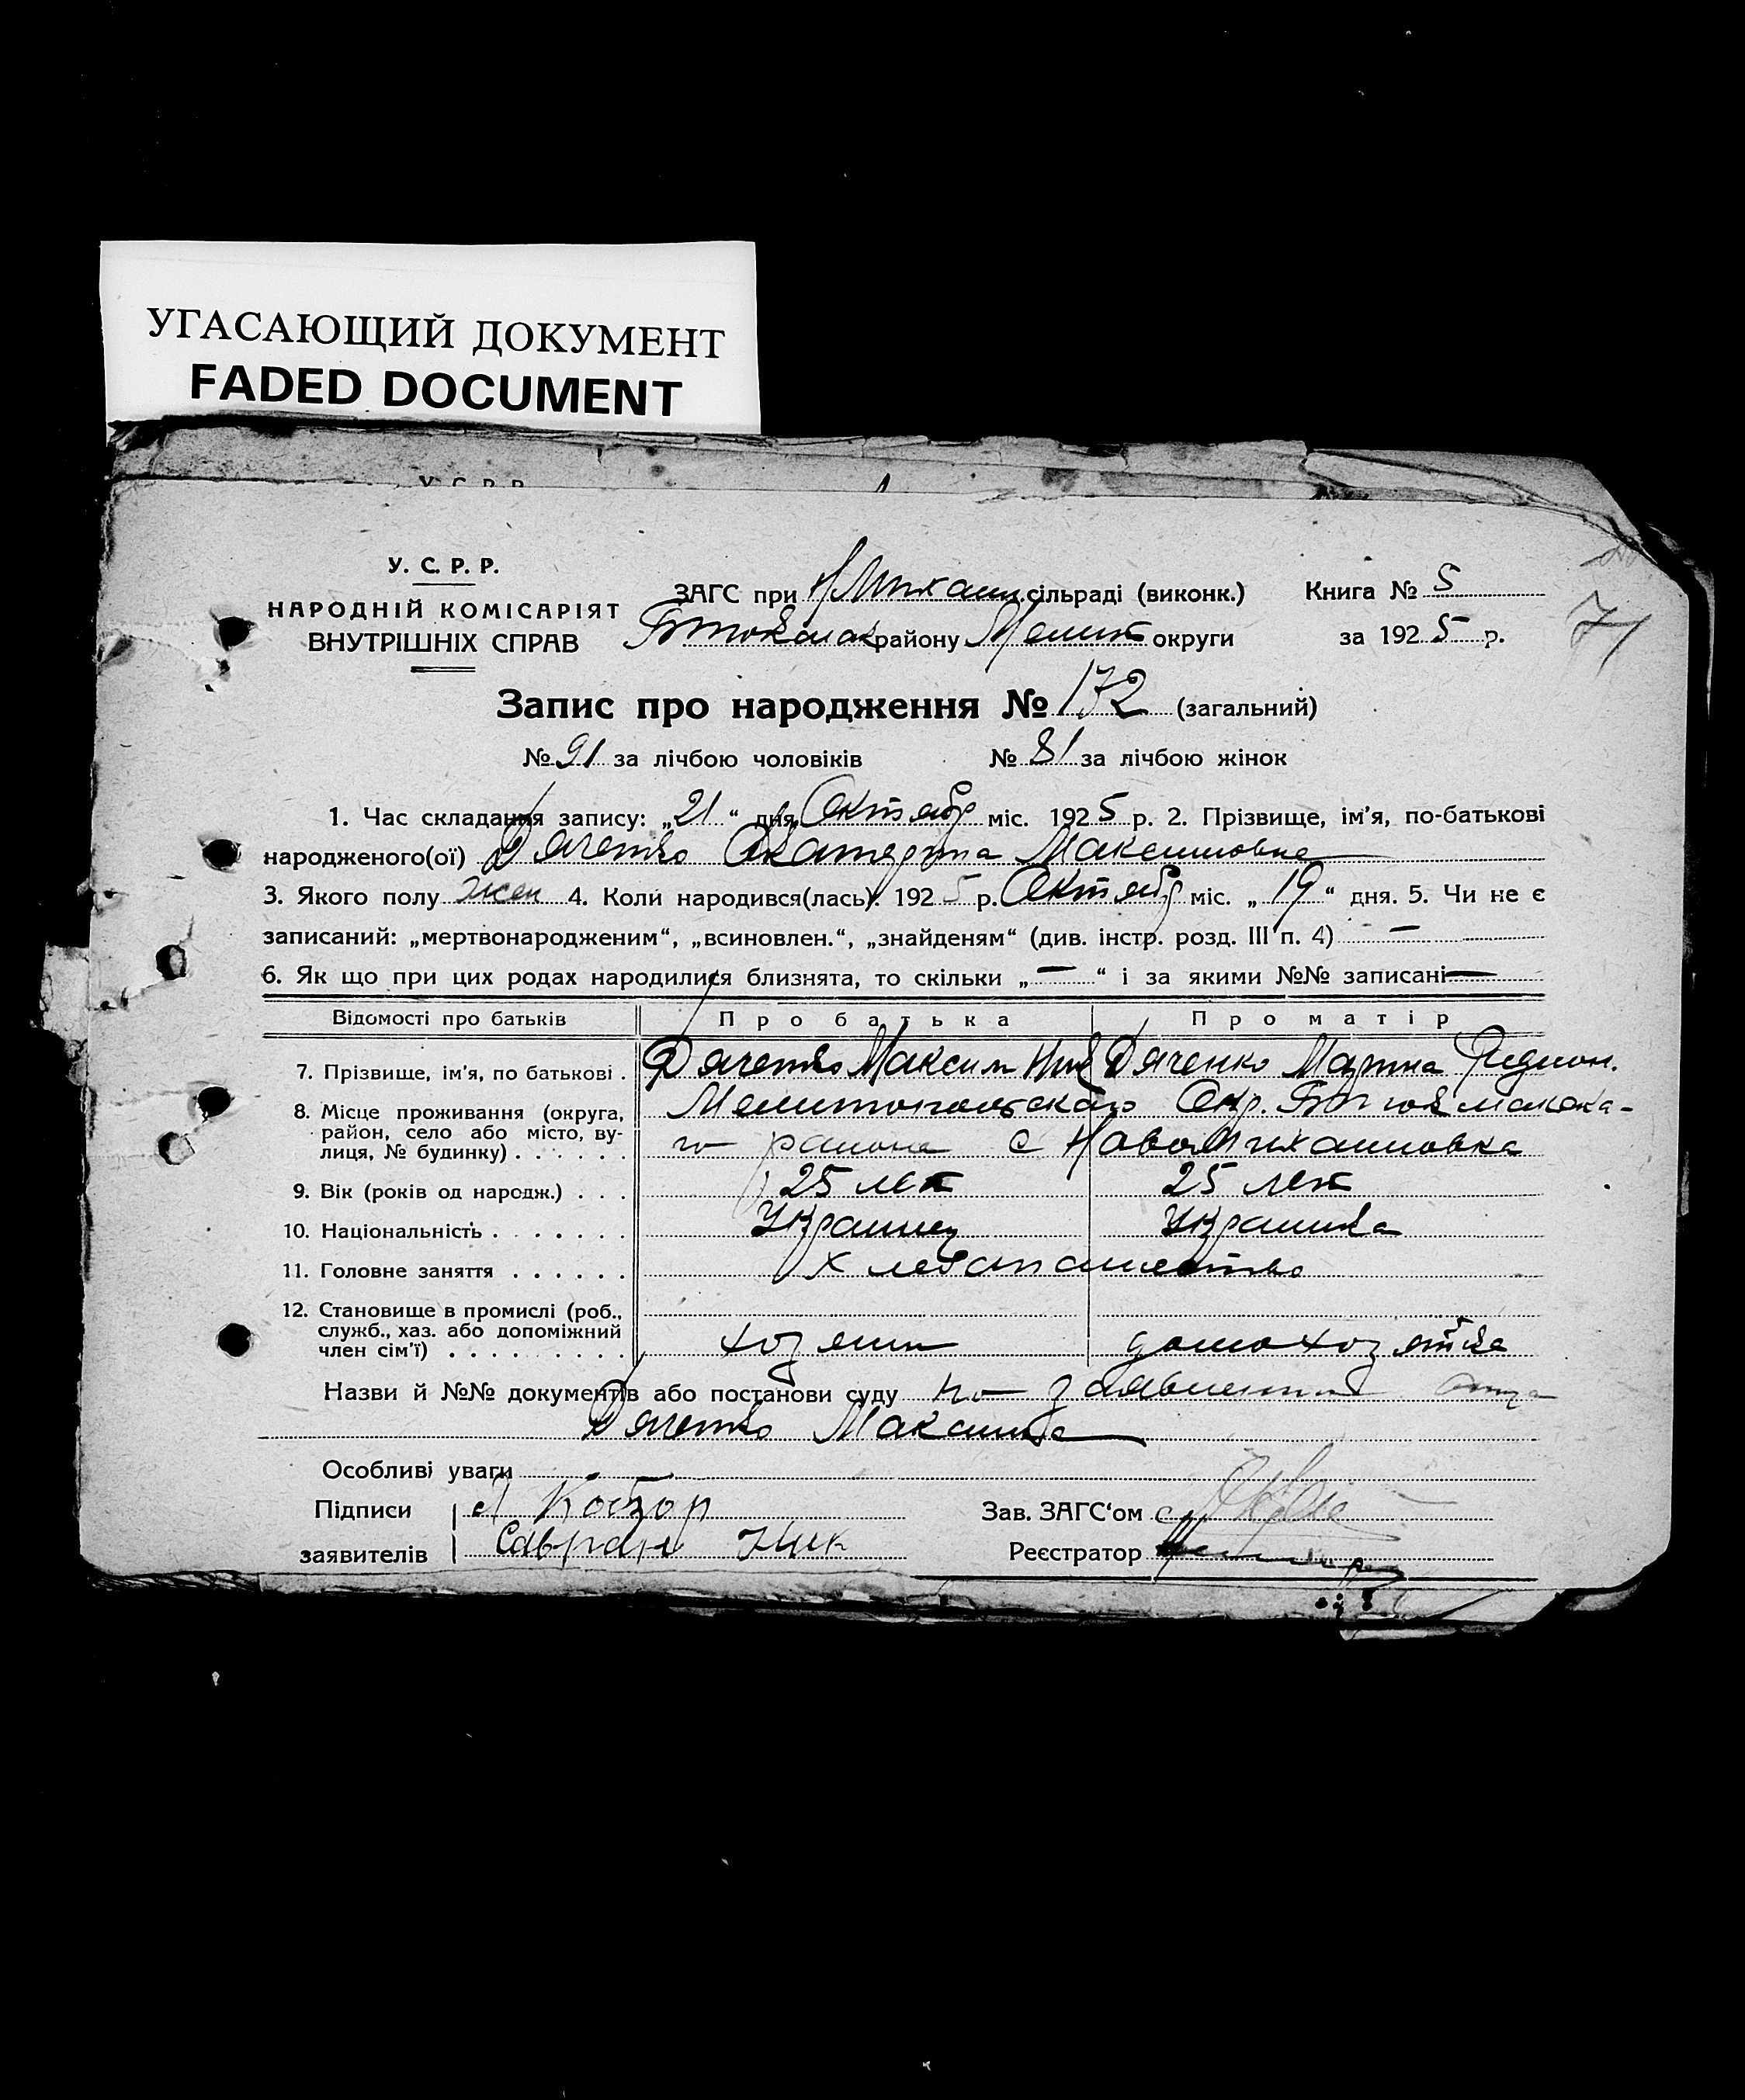 УГАСАЮЩИЙ ДОКУМЕНТ
FADED DOCUMENT
У. С. Р. Р.
У. С. Р. Р.
НАРОДНІЙ КОМІСАРІЯТ
ВНУТРІШНІХ СПРАВ
ЗАГС при Н Михайл. сільраді (виконк.) Книга № 5
Бтокмак району Мелит округи за 1925 р.
71
Запис про народження № 172 (загальний)
№ 91 за лічбою чоловіків № 81 за лічбою жінок
1. Час складання запису: „21“ дня Октябр міс. 1925 р. 2. Прізвище, ім'я, по-батькові
народженого(ої) Дяченко Екатерина Максимовна
3. Якого полу жен 4. Коли народився(лась): 1925 р. Октябр міс. „19“ дня. 5. Чи не є
записаний: „мертвонародженим“, „всиновлен.“, „знайденям“ (див. інстр. розд. III п. 4) —
6. Як що при цих родах народилися близнята, то скільки „—“ і за якими №№ записані —
Відомості про батьків Про батька Про матір
7. Прізвище, ім'я, по батькові . Дяченко Максим Ник Дяченко Марина Родион.
8. Місце проживання (округа, Мелитопольского Окр. Б токмакска-
район, село або місто, ву-
лиця, № будинку) . . . . . . го района с НовоМихайловка
9. Вік (років од народж.) . . . 25 лет 25 лет
10. Національність . . . . . . . Украинец Украинка
11. Головне заняття . . . . . . Хлебапашество
12. Становище в промислі (роб.,
служб., хаз. або допоміжний
член сім'ї) . . . . . . . . . хозяин домохозяйка
Назви й №№ документів або постанови суду по заявлению отца
Дяченко Максима
Особливі уваги
Підписи Кобзар Зав. ЗАГС'ом
заявителів Савран Ник Реєстратор